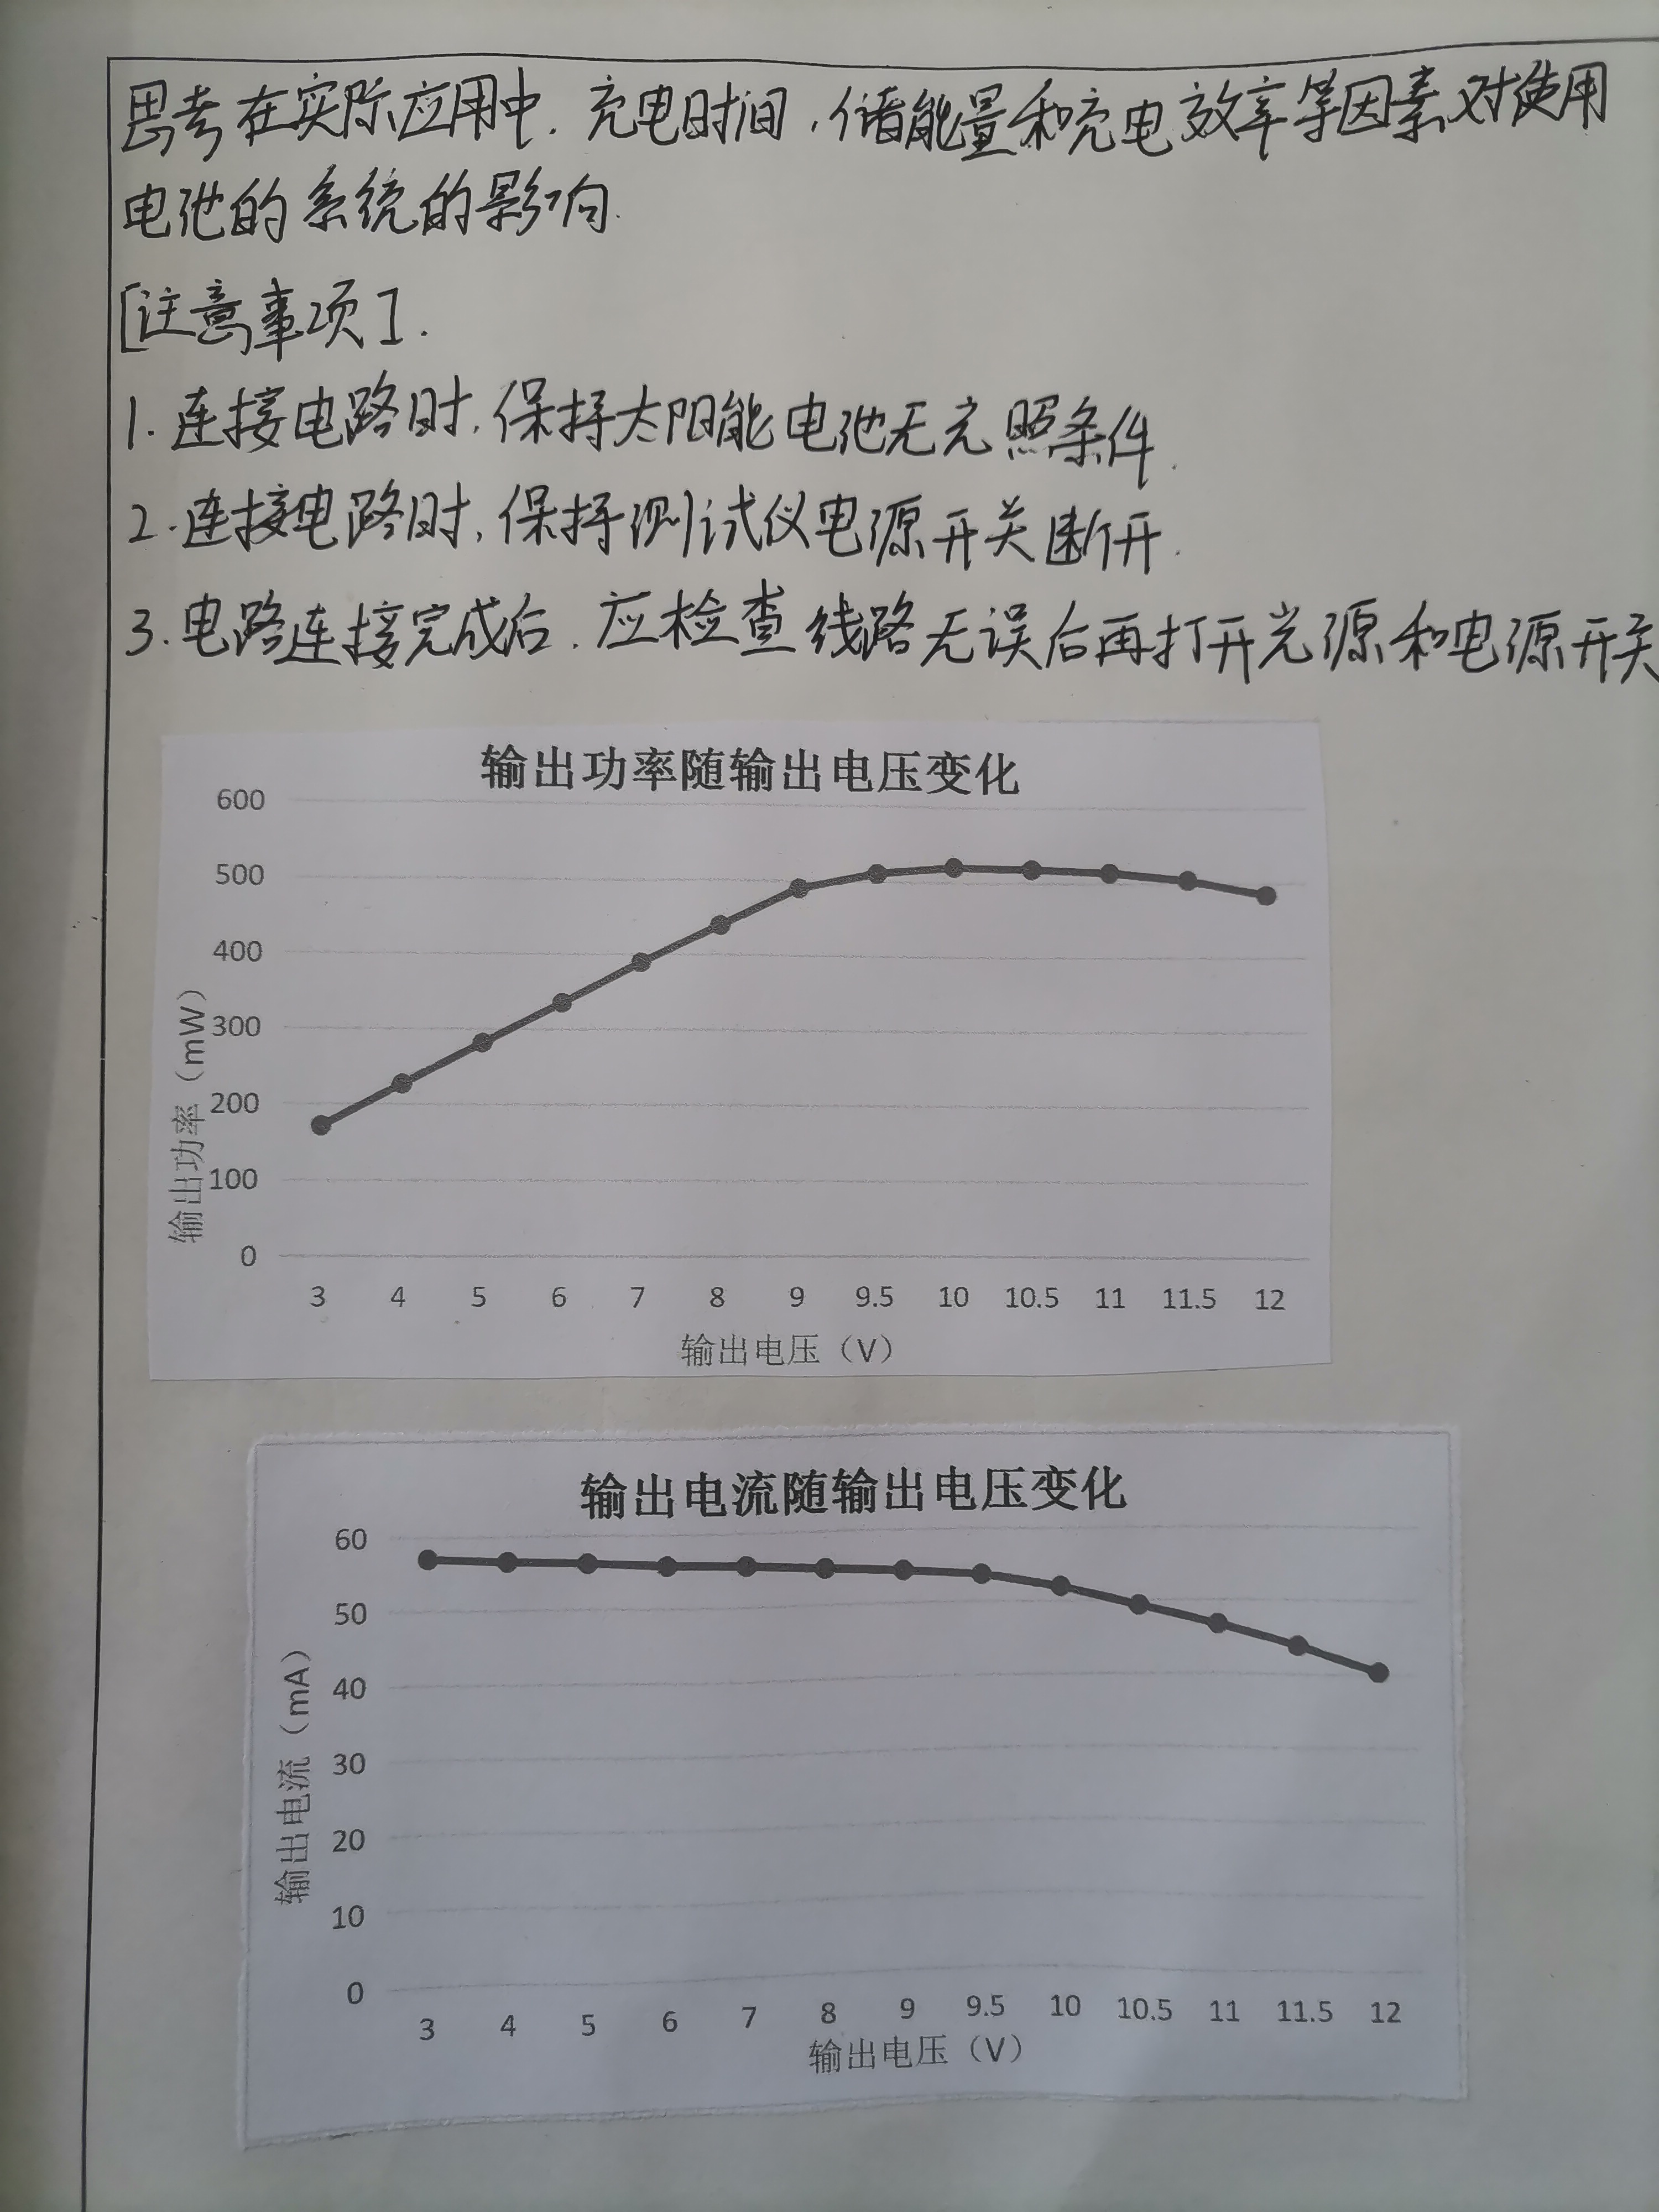 思考在实际应用中，充电时间，储能量和充电效率等因素对使用
电池的系统的影响．
[注意事项]．
1. 连接电路时，保持太阳能电池无光照条件．
2. 连接电路时，保持测试仪电源开关断开．
3. 电路连接完成后，应检查线路无误后再打开光源和电源开关
输出功率随输出电压变化
600
500
400
300
200
100
0
输出功率（mW）
3 4 5 6 7 8 9 9.5 10 10.5 11 11.5 12
输出电压（V）
输出电流随输出电压变化
60
50
40
30
20
10
0
输出电流（mA）
3 4 5 6 7 8 9 9.5 10 10.5 11 11.5 12
输出电压（V）